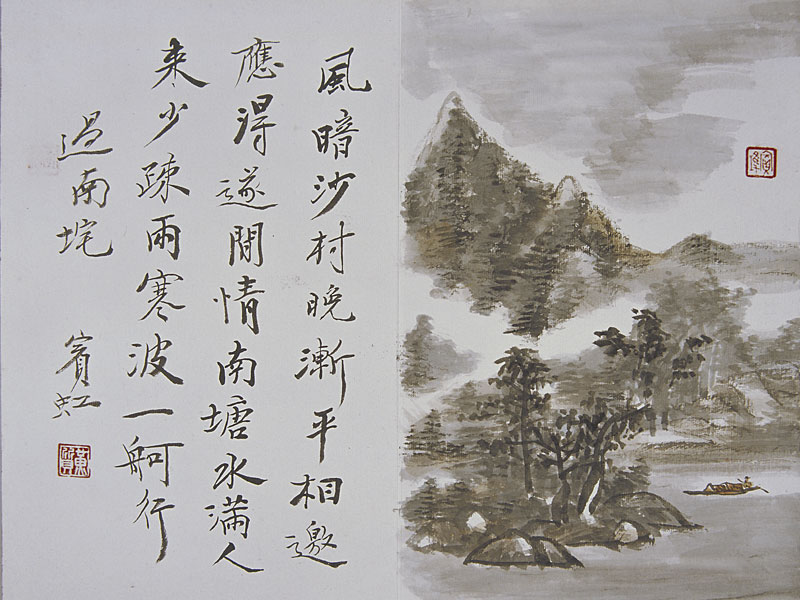 風暗沙村晚漸平相邀
應得遂閒情南塘水滿人
來少疎雨寒波一舸行
過南垞
賓虹